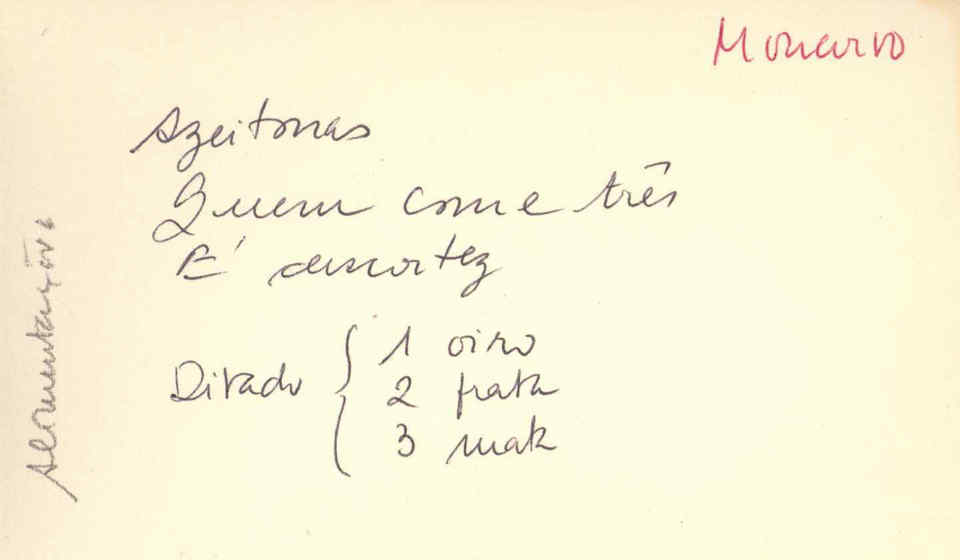 Moncorvo
Azeitonas
Quem come três
É descortez
Ditado
1 oiro
2 prata
3 mata
Alimentação